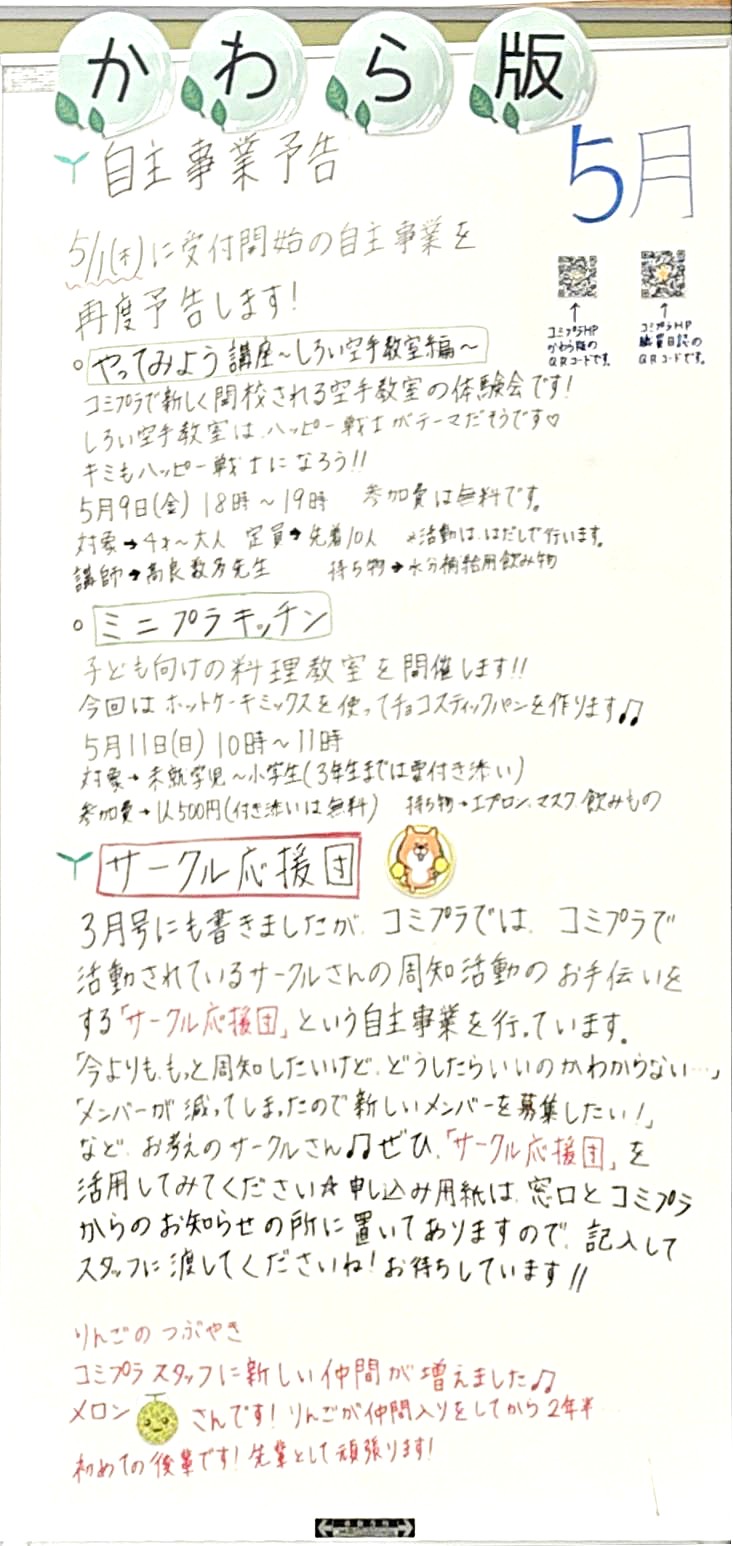 かわら版
5月
自主事業予告
5/1(木)に受付開始の自主事業を
再度予告します!
コミプラHP
かわら版の
QRコードです。
コミプラHP
職員日記の
QRコードです。
○やってみよう講座～しろい空手教室編～
コミプラで新しく開校される空手教室の体験会です!
しろい空手教室は、ハッピー戦士がテーマだそうです♡
キミもハッピー戦士になろう!!
5月9日(金) 18時～19時 参加費は無料です。
対象→4才～大人 定員→先着10人 ※活動は、はだしで行います。
講師→高良数芳先生 持ち物→水分補給用飲み物
○ミニプラキッチン
子ども向けの料理教室を開催します!!
今回はホットケーキミックスを使ってチョコスティックパンを作ります♫
5月11日(日) 10時～11時
対象→未就学児～小学生(3年生までは要付き添い)
参加費→1人500円(付き添いは無料) 持ち物→エプロン、マスク、飲みもの
サークル応援団
3月号にも書きましたが、コミプラでは、コミプラで
活動されているサークルさんの周知活動のお手伝いを
する「サークル応援団」という自主事業を行っています。
「今よりも、もっと周知したいけど、どうしたらいいのかわからない…」
「メンバーが減ってしまったので新しいメンバーを募集したい!」
など、お考えのサークルさん♫ぜひ、「サークル応援団」を
活用してみてください☆申し込み用紙は、窓口とコミプラ
からのお知らせの所に置いてありますので、記入して
スタッフに渡してくださいね!お待ちしています//
りんごのつぶやき
コミプラスタッフに新しい仲間が増えました♫
メロンさんです!りんごが仲間入りをしてから2年半
初めての後輩です!先輩として頑張ります!